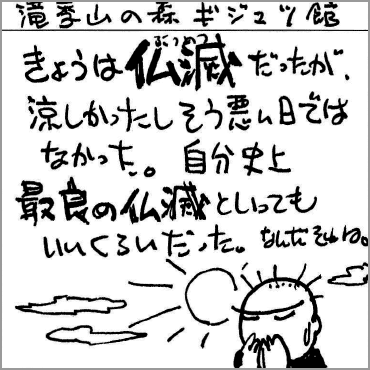 滝季山の森ギジュツ館
ぶつめつ
きょうは仏滅だったが、
涼しかったしそう悪い日では
なかった。自分史上
最良の仏滅といっても
いいくらいだった。なんだそれは。